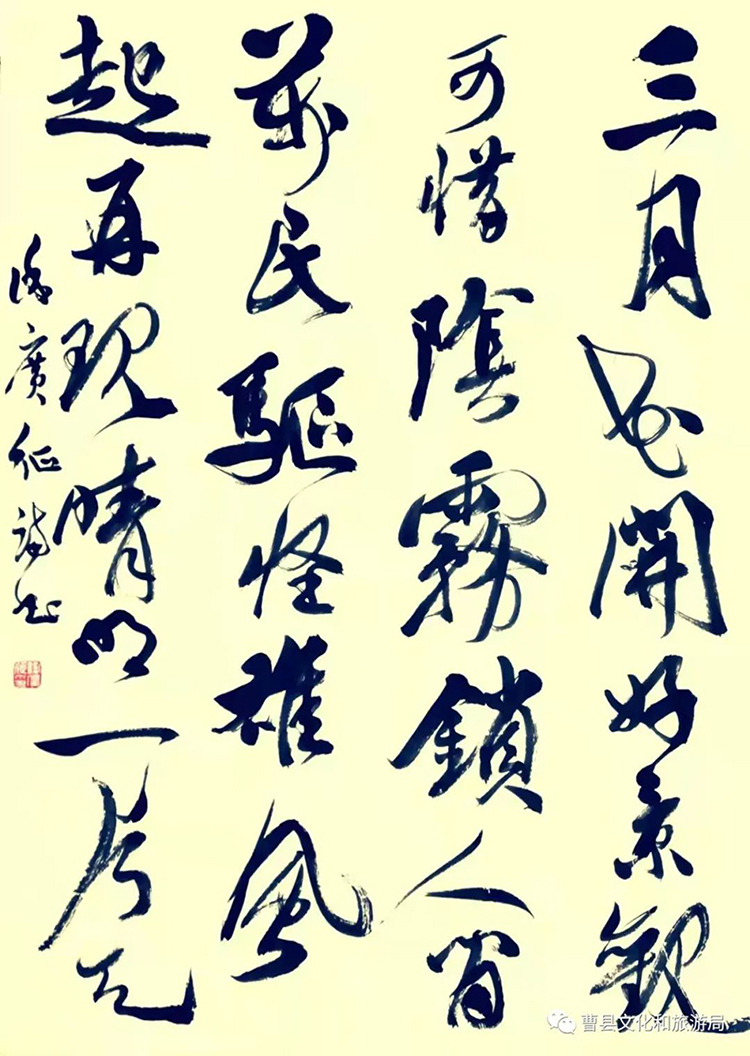 三月花開好景觀
可惜陰霧鎖人間
萬民驅怪雄風
起再現晴明一片天
廣征詩書
曹县文化和旅游局